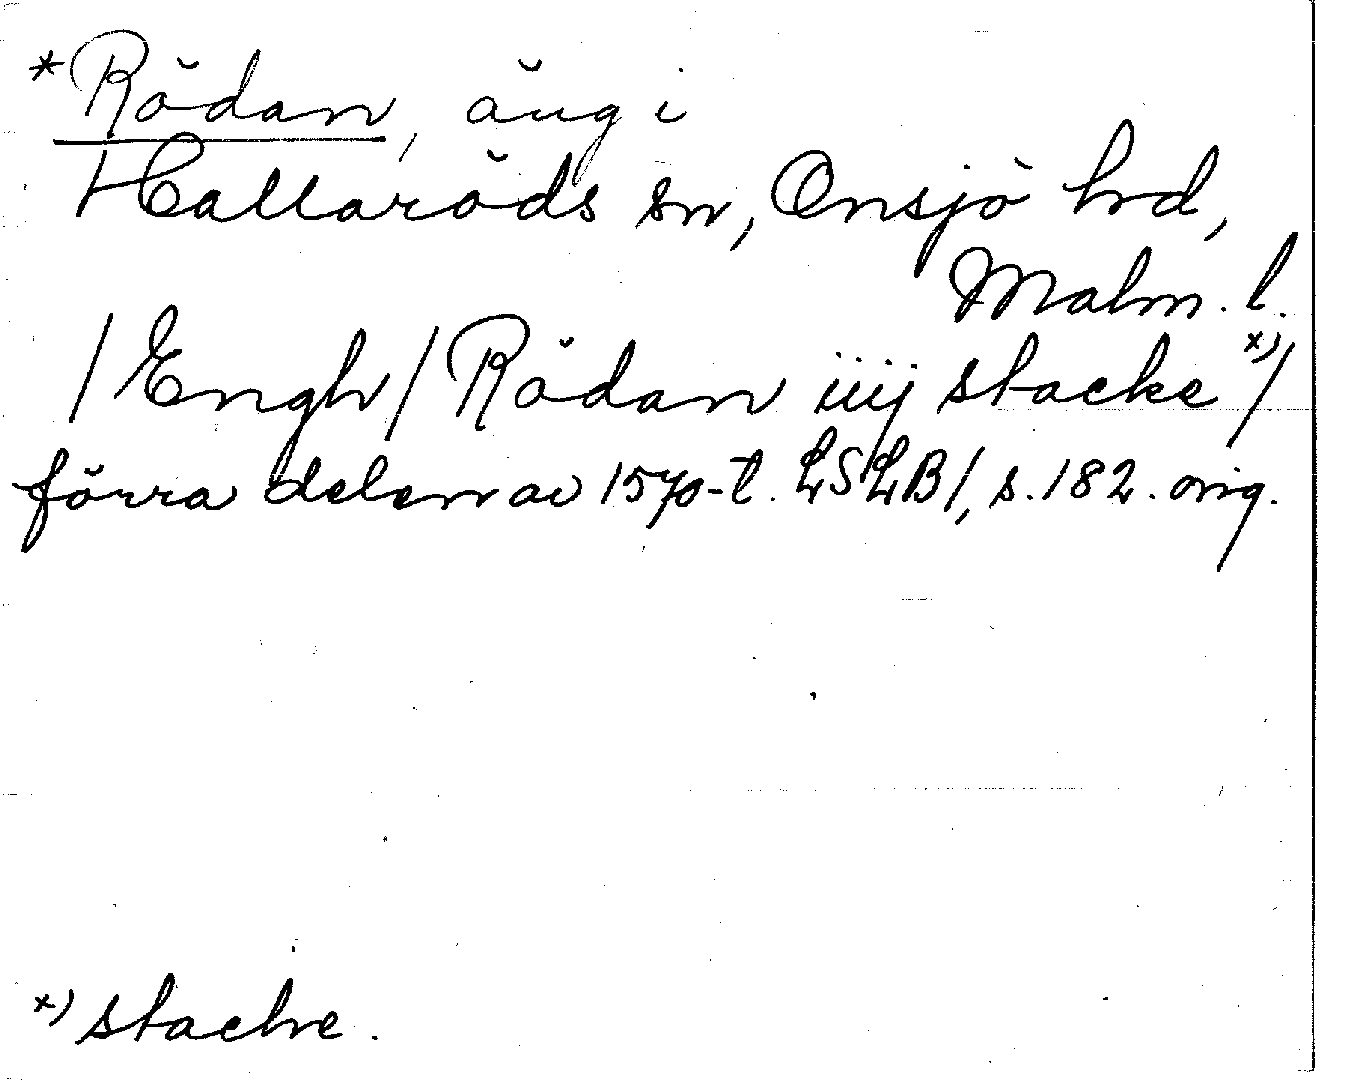 *Rödan, äng i
Hallaröds sn, Onsjö hd,
Malm. l.
/Engh/ Rödan iiij stacke x)/
förra delen av 1570-t. LSLB/, s. 182. orig.
x) stache.